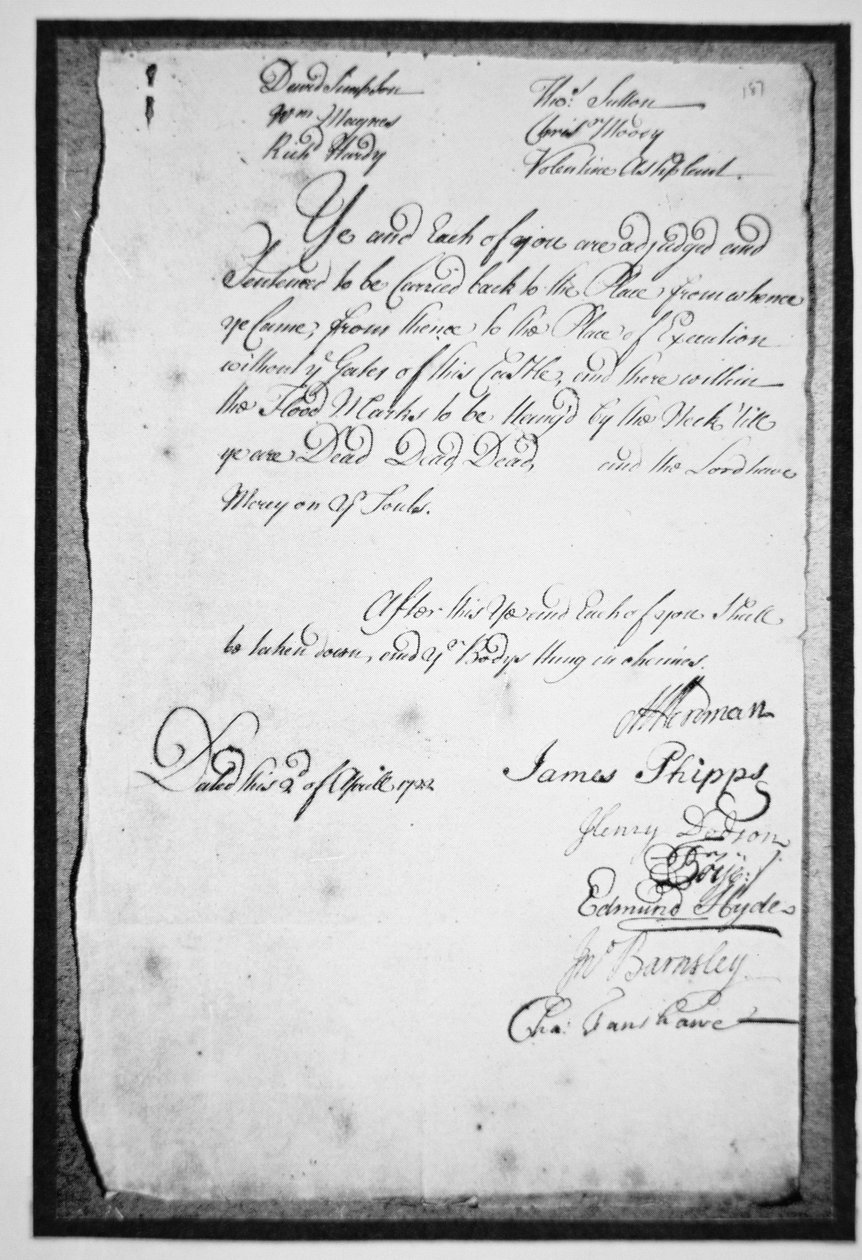 187
David Simpson
Wm Magnes
Richd Hardy
Thos. Sutton
Chrisr Moody
Valentine Ashplant.
Ye and Each of you are adjudged and
Sentenced to be Carried back to the Place from whence
ye Came, from thence to the Place of Execution
without ye Gates of this Castle, and there within
the Flood Marks to be Hang'd by the Neck 'till
ye are Dead Dead Dead, and the Lord have
Mercy on Yr Souls.
After this Ye and Each of you Shall
be taken down, and Yr Bodys Hung in chaines.
Herdman
James Phipps
Dated this 2d of Aprill 1722
Henry Dodson
Boye:
Edmund Hyde
Jno Barnsley
Cha: Fanshawe